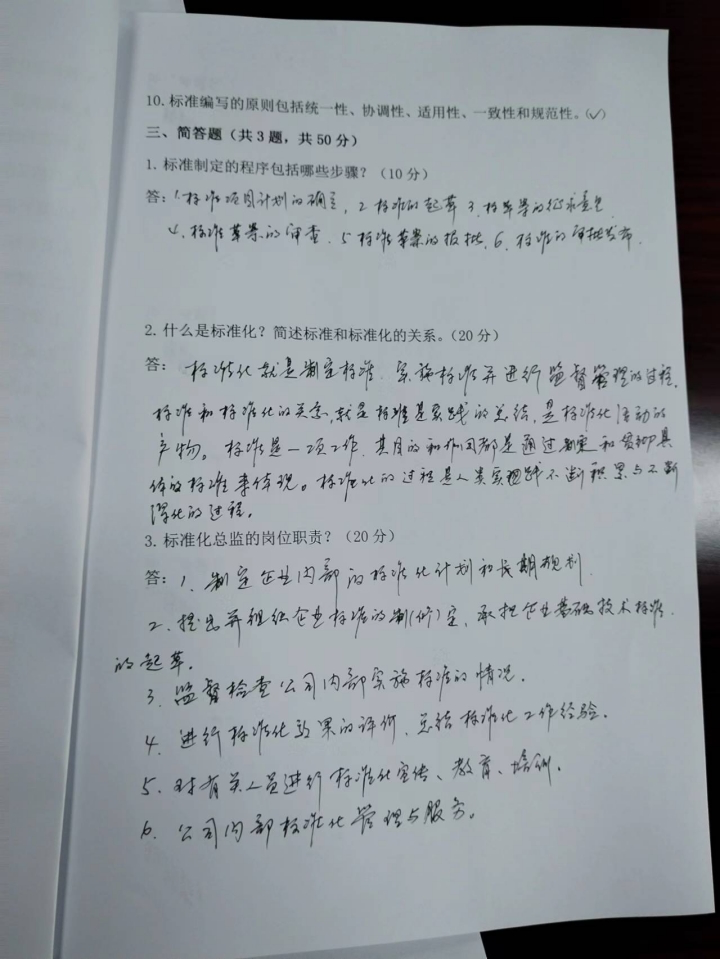 10. 标准编写的原则包括统一性、协调性、适用性、一致性和规范性。(✓)
三、简答题（共3题，共50分）
1. 标准制定的程序包括哪些步骤？（10分）
答：1.标准项目计划的确立，2 标准的起草 3.标准草案的征求意见
4.标准草案的审查. 5 标准草案的报批. 6.标准的审批发布.
2. 什么是标准化？简述标准和标准化的关系。（20分）
答：标准化就是制定标准.实施标准并进行监督管理的过程.
标准和标准化的关系,就是标准是实践的总结,是标准化活动的
产物。标准是一项工作.其目的和作用都是通过制定和贯彻具
体的标准来体现。标准化的过程是人类实践不断积累与不断
深化的过程。
3. 标准化总监的岗位职责？（20分）
答：1.制定企业内部的标准化计划和长期规划.
2.提出并组织企业标准的制(修)定,承担企业基础技术标准
的起草.
3.监督检查公司内部实施标准的情况.
4.进行标准化效果的评价、总结标准化工作经验.
5.对有关人员进行标准化宣传、教育、培训.
6.公司内部标准化管理与服务。